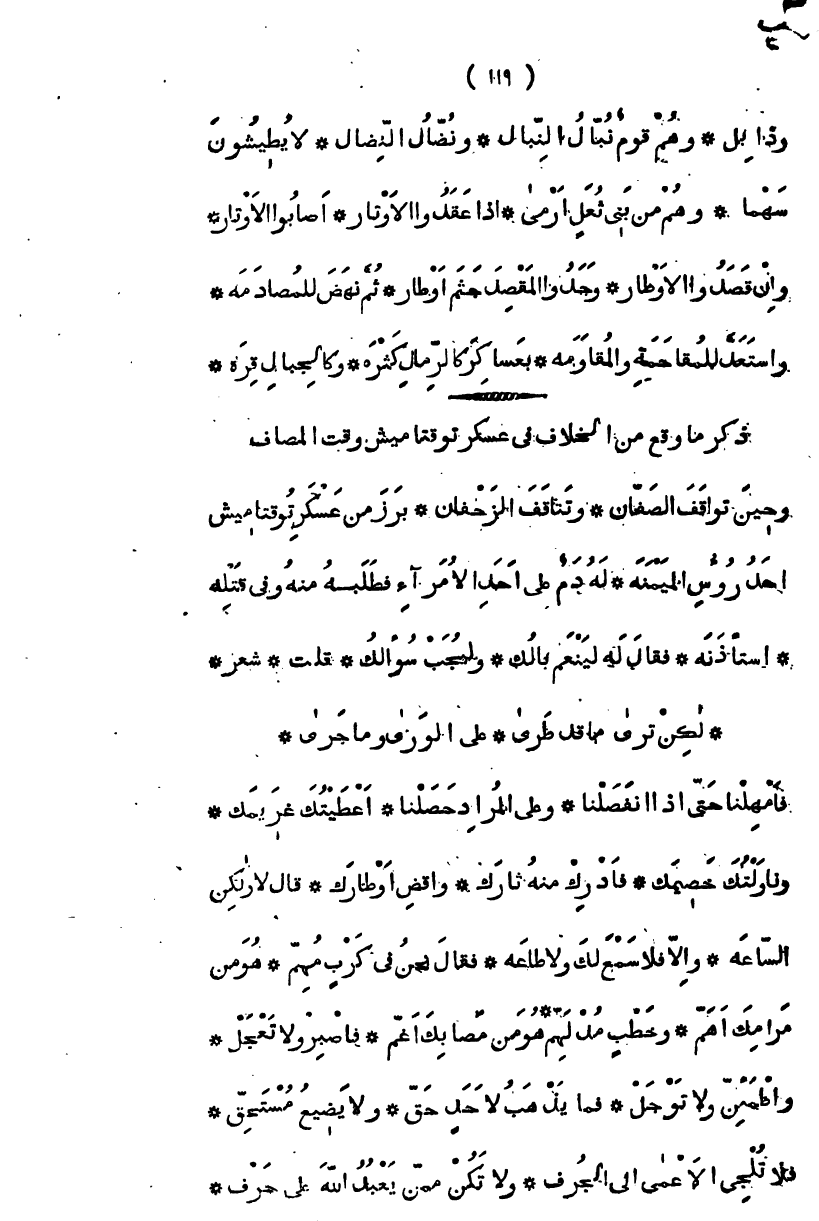 ( ١١٩ )
وذا بِل * وهُمْ قومٌ نُبّالُ النِّبال * ونُضّالُ النِّضال * لا يُطِيشُونَ
سَهْما * وهُمْ من بَنِى ثُعَلٍ اَرْمىٰ * اذا عَقَدُوا الاَوْتار * اَصابُوا الاَوْتار *
واِنْ قَصَدُوا الاَوْطار * وَجَدُوا المَقْصِدَ جَثَمَ اَوْطار * ثُمَّ نهَضَ للمُصادَمَه *
واستَعَدَّ للمُقاحَمَةِ والمُقاوَمه * بعَساكِرَ كالرِّمالِ كَثْرَه * وكالجِبالِ قِرَه *
ذكر ما وقع من الخلاف فى عسكر توقتاميش وقت المصاف
وحِينَ تواقَفَ الصَفّان * وتَناقَفَ الزَحْفان * برَزَ من عَسْكَرِ تُوقتاميش
احَدُ رُوُسِ المَيْمَنَه * لَهُ دَمٌ على اَحَدِ الاُمَرآءِ فطَلَبهُ منهُ وفى قَتْلِه
* استأذَنَه * فقالَ لَه لِيَنْعَم بالُك * ولْيُجَبْ سُؤالُك * قلت * شعر *
* لٰكِنْ ترىٰ ما قد طَرىٰ * على الوَرىٰ وما جَرىٰ *
فاَمْهِلْنا حَتّى اذا انفَصَلْنا * وعلى المُرادِ حَصَلْنا * اَعْطَيْتُكَ غرَيمَك *
وناوَلْتُكَ خَصِيمَك * فاَدْرِكْ منهُ ثارَك * واقضِ اَوْطارَك * قال لا ولٰكِن
السّاعَه * واِلّا فلا سَمْعَ لكَ ولا طاعَه * فقالَ نحنُ فى كَرْبٍ مُهِمّ * هُوَ من
مَرامِكَ اَهَمّ * وخَطْبٍ مُدْلَهِمّ * هُوَ من مُصابِكَ اَغَمّ * فاصْبِرْ ولا تَعْجَلْ *
واطْمَئِنّ ولا تَوْجَلْ * فما يَذْهَبُ لاَحَدٍ حَقّ * ولا يَضِيعُ مُسْتَحِقّ *
فلا تُلْجِى الاَعْمٰى الى الجُرف * ولا تَكُنْ ممّن يَعْبُدُ اللّهَ على حَرْف *